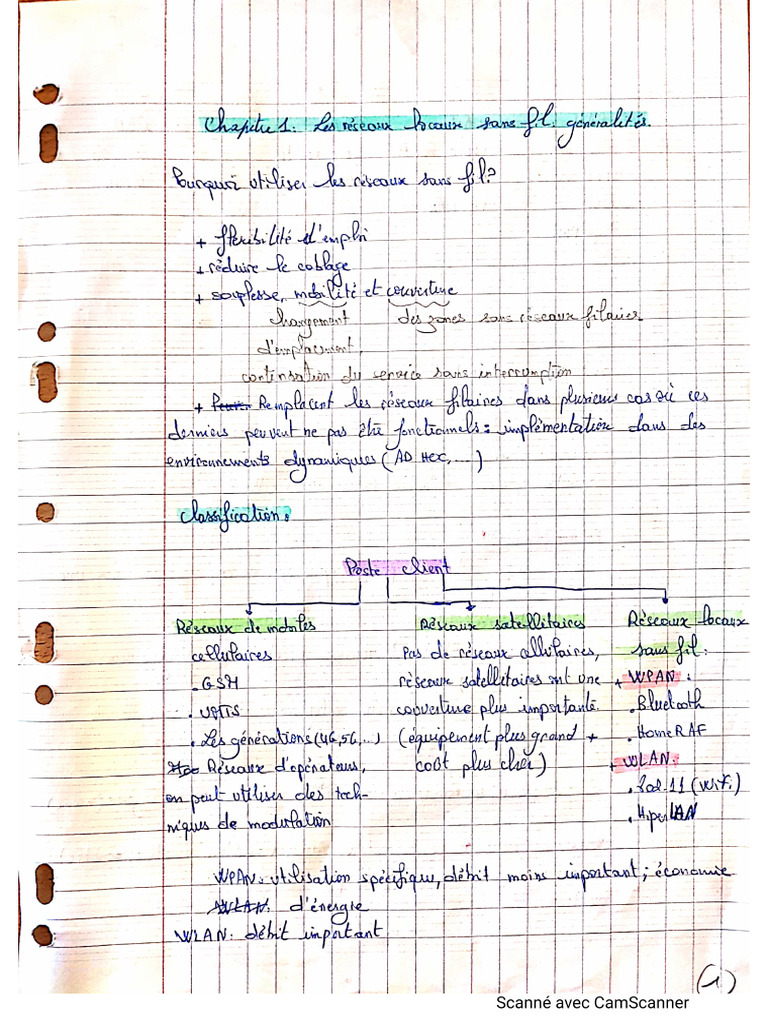 Chapitre 1: Les réseaux locaux sans fil: généralités.
Pourquoi utiliser les réseaux sans fil?
+ flexibilité d'emploi
+ réduire le cablage
+ souplesse, mobilité et couverture
changement des zones sans réseaux filaires
d'emplacement,
continsation du service sans interromption
+ Remplacent les réseaux filaires dans plusieurs cas où ces
derniers peuvent ne pas être fonctionnels: implémentation dans des
environnements dynamiques (AD Hoc, ...)
Classification:
Poste client
Réseaux de mobiles
cellulaires
. GSM
. UMTS
. Les générations (4G, 5G, ...)
Réseaux d'opérateurs,
on peut utiliser des tech-
niques de modulation
Réseaux satellitaires
Pas de réseaux cellulaires,
réseaux satellitaires ont une
couverture plus importante
(équipement plus grand +
coût plus cher)
Réseaux locaux
sans fil:
+ WPAN:
. Bluetooth
. HomeRAF
+ WLAN:
. 802.11 (Wifi)
. HiperLAN
WPAN: utilisation spécifique, débit moins important; économie
d'énergie
WLAN: débit important
(1)
Scanné avec CamScanner